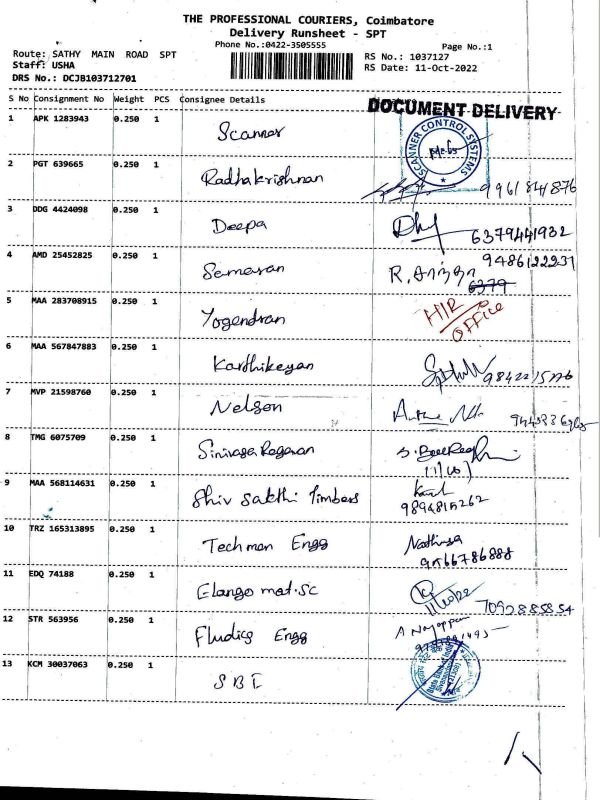 THE PROFESSIONAL COURIERS, Coimbatore
Delivery Runsheet - SPT
Phone No.:0422-3505555
Page No.:1
Route: SATHY MAIN ROAD SPT
RS No.: 1037127
Staff: USHA
RS Date: 11-Oct-2022
DRS No.: DCJB103712701
S No Consignment No Weight PCS Consignee Details
DOCUMENT DELIVERY
1 APK 1283943 0.250 1 Scanner
SCANNER CONTROL SYSTEMS
2 PGT 639665 0.250 1 Radhakrishnan
3 DDG 4424098 0.250 1 Deepa 6379441932
4 AMD 25452825 0.250 1 9486122231
R. 6379
5 MAA 283708915 0.250 1 Yogendran
Office
6 MAA 567847883 0.250 1 Karthikeyan
7 MVP 21598760 0.250 1 Nelson
8 TMG 6075709 0.250 1
9 MAA 568114631 0.250 1 Shiv Sakthi Timbers
10 TRZ 165313895 0.250 1 Techmen Engg
9566786888
11 EDQ 74188 0.250 1 Elango mat.sc
12 STR 563956 0.250 1 Fludics Engg
13 KCM 30037063 0.250 1 SBI